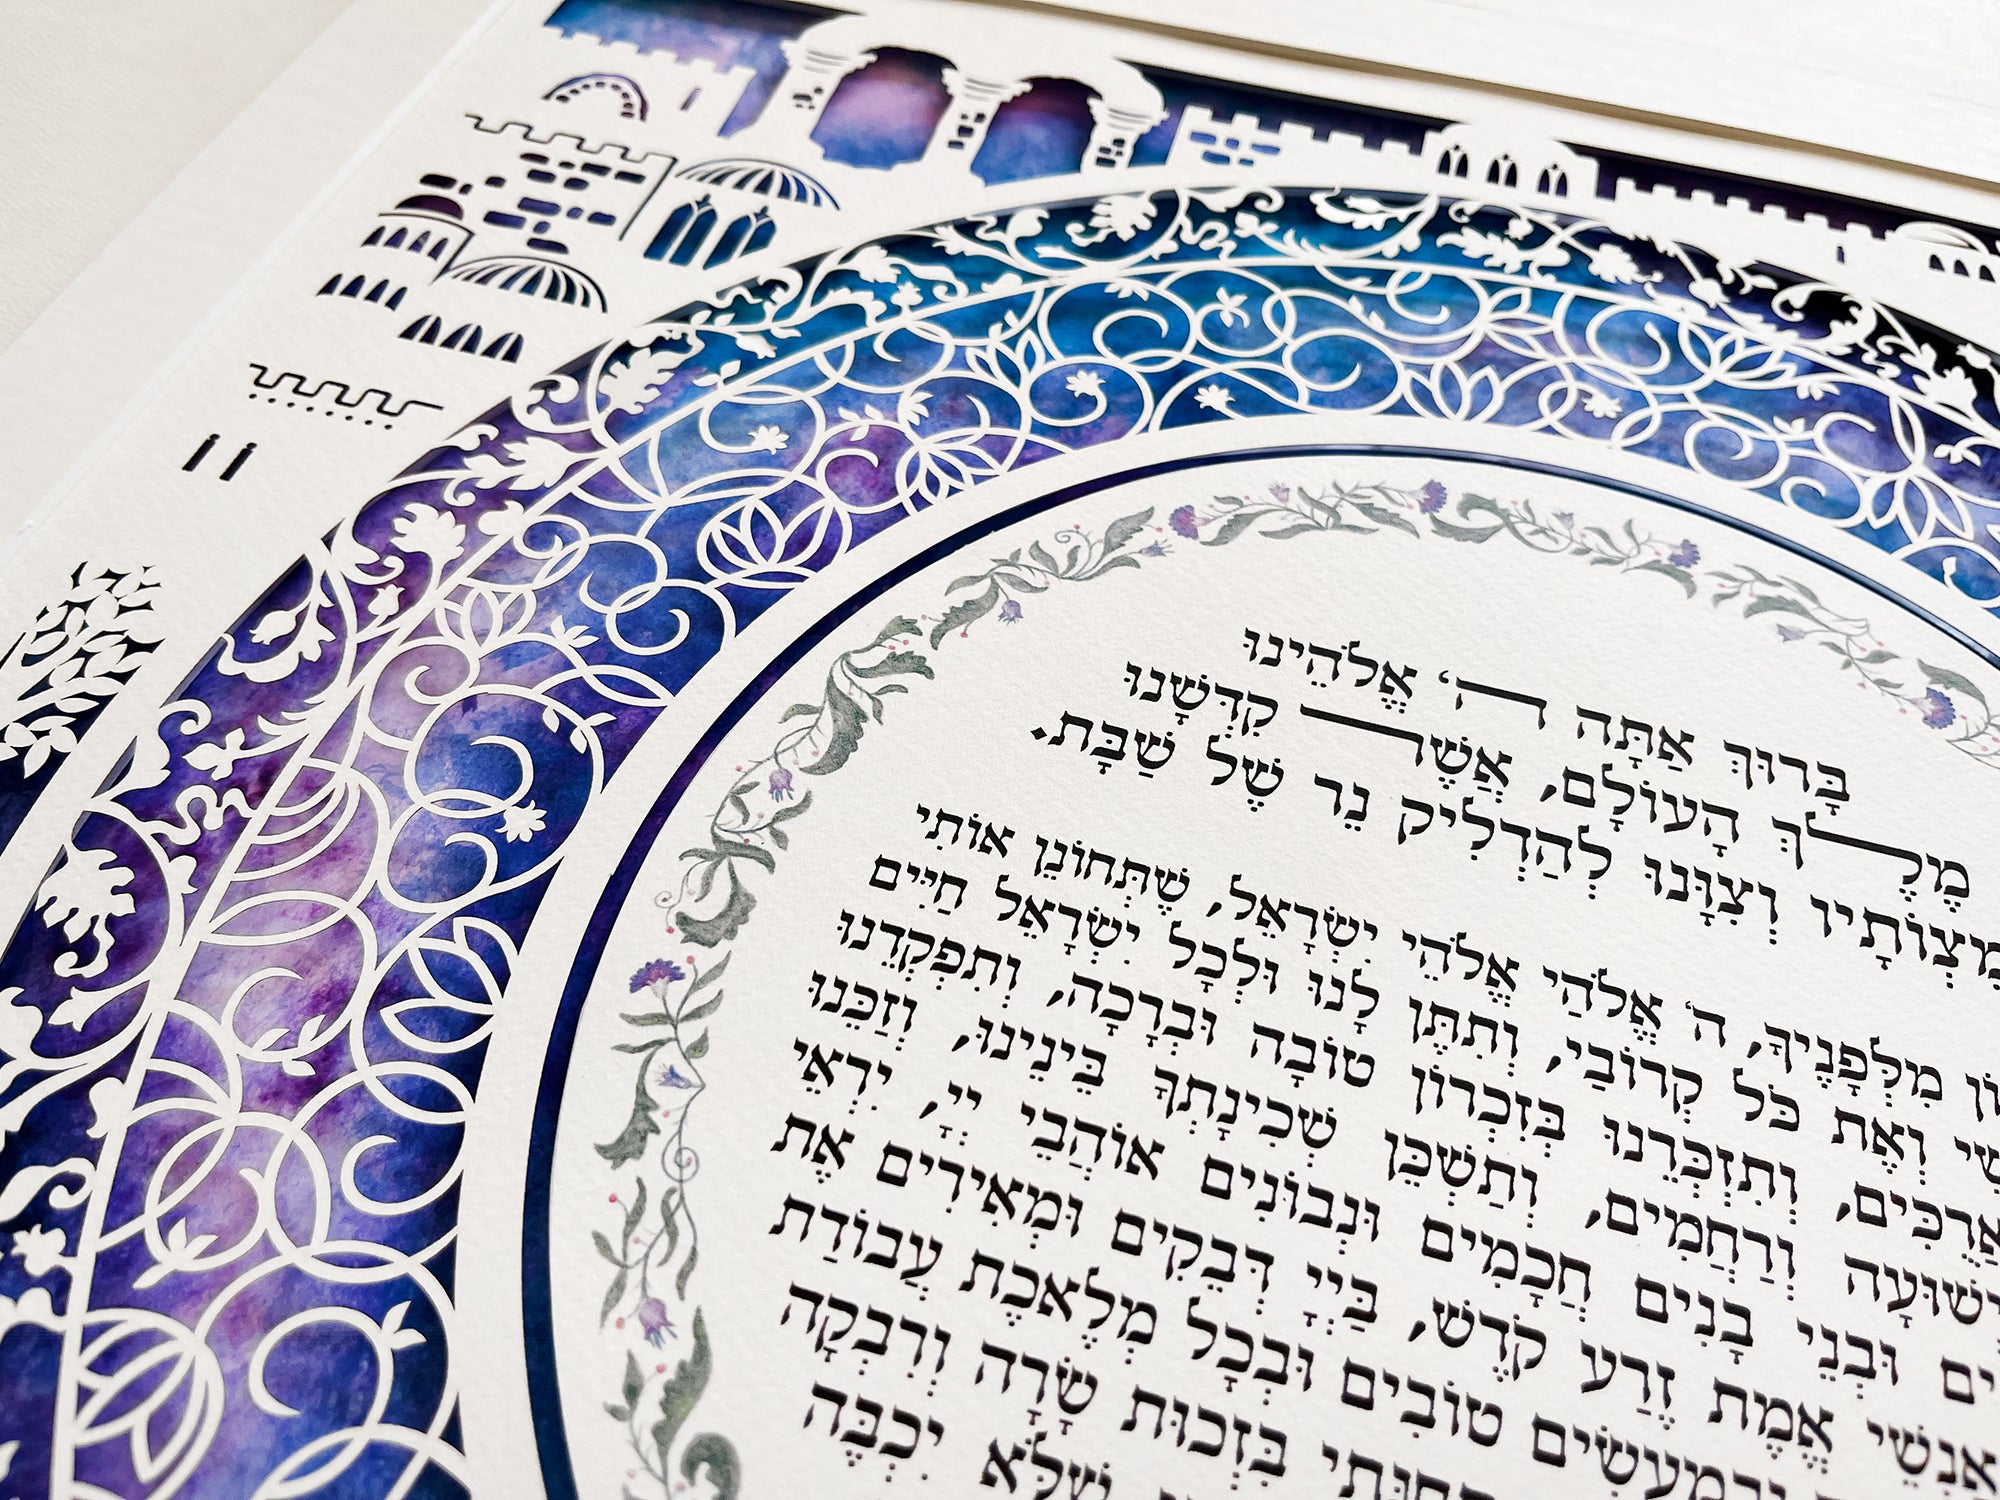 בָּרוּךְ אַתָּה ה' אֱלֹהֵינוּ
מֶלֶךְ הָעוֹלָם, אֲשֶׁר קִדְּשָׁנוּ
מִצְוֹתָיו וְצִוָּנוּ לְהַדְלִיק נֵר שֶׁל שַׁבָּת.
מִלְּפָנֶיךָ, ה' אֱלֹהַי אֱלֹהֵי יִשְׂרָאֵל, שֶׁתְּחוֹנֵן אוֹתִי
וְאֶת כֹּל קְרוֹבַי, וְתִתֶּן לָנוּ וּלְכָל יִשְׂרָאֵל חַיִּים
אֲרֻכִּים, וְתִזְכְּרֵנוּ בְּזִכְרוֹן טוֹבָה וּבְרָכָה, וְתִפְקְדֵנוּ
יְשׁוּעָה וְרַחֲמִים, וְתַשְׁכֵּן שְׁכִינָתְךָ בֵּינֵינוּ, וְזַכֵּנוּ
וּבְנֵי בָנִים חֲכָמִים וּנְבוֹנִים אוֹהֲבֵי יְיָ, יִרְאֵי
אַנְשֵׁי אֱמֶת זֶרַע קֹדֶשׁ, בַּיְיָ דְּבֵקִים וּמְאִירִים אֶת
וּבְמַעֲשִׂים טוֹבִים וּבְכָל מְלֶאכֶת עֲבוֹדַת
בִּזְכוּת שָׂרָה וְרִבְקָה
שֶׁלֹּא יִכְבֶּה